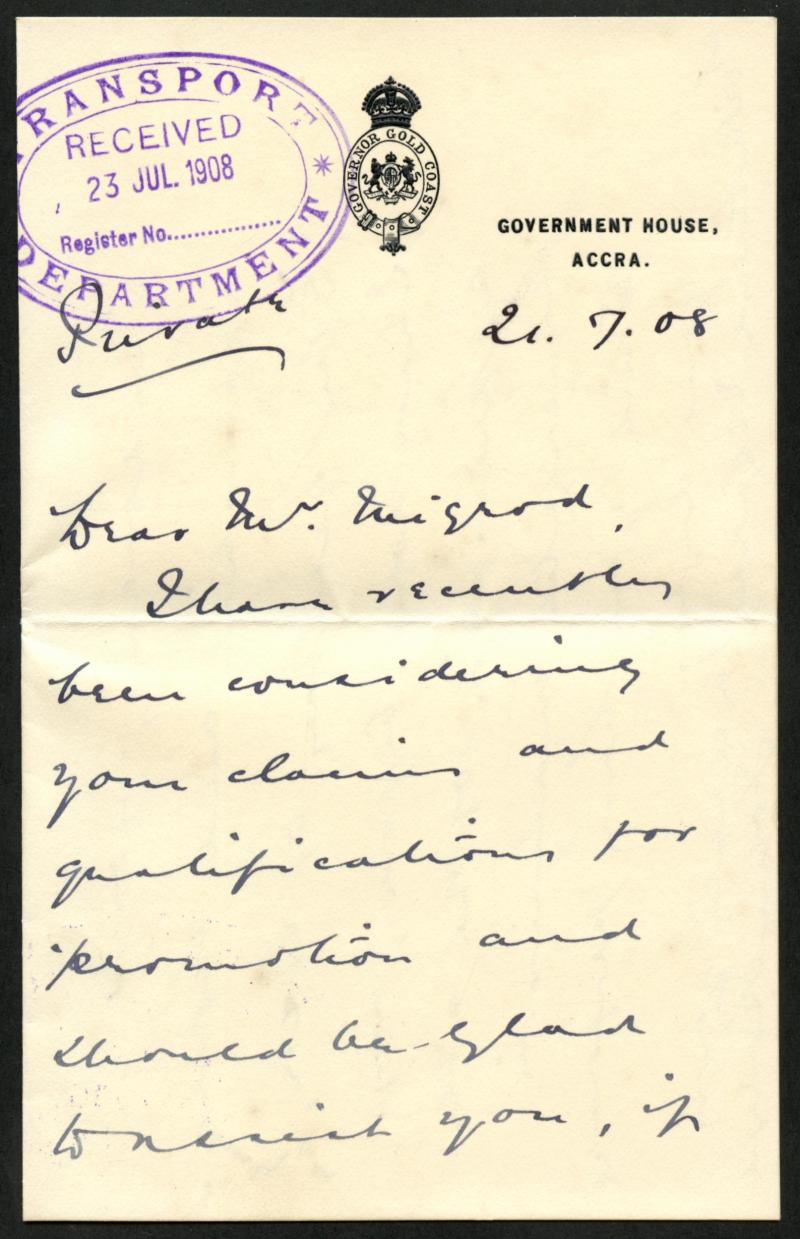 TRANSPORT
RECEIVED
23 JUL. 1908
Register No.
DEPARTMENT
GOVERNOR GOLD COAST
GOVERNMENT HOUSE,
ACCRA.
Private
21. 7. 08
Dear Mr. Migrod,
I have recently
been considering
your claims and
qualifications for
promotion and
should be glad
to assist you, if